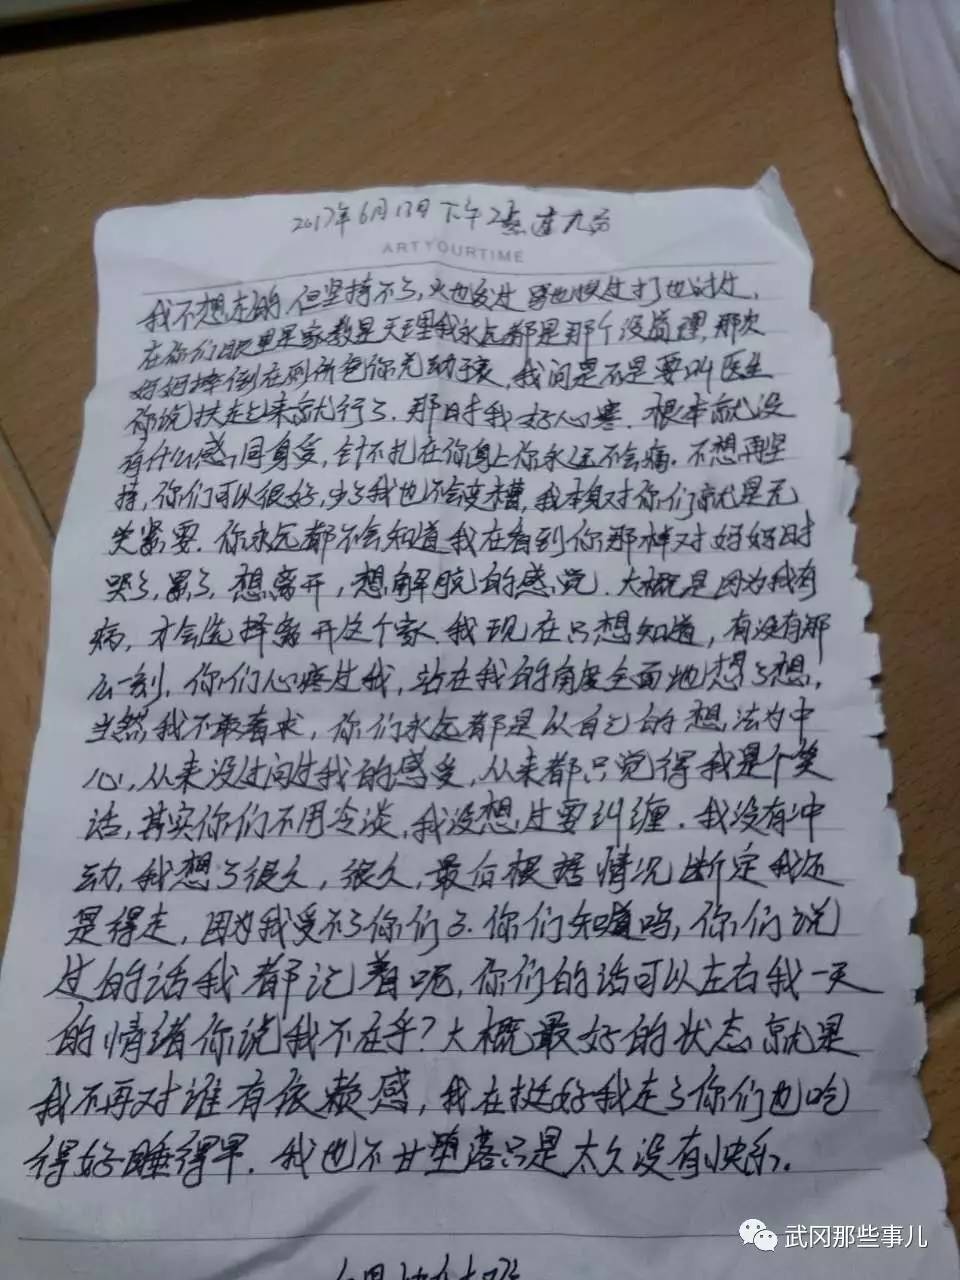 2017年6月13日下午2点过九分
ARTYOURTIME
我不想走的,但坚持不了,火也发过 骂也骂过打也讨过,
在你们眼里是家教是天理我永远都是那个没道理,那次
好好摔倒在厕所包你无动于衷,我问是不是要叫医生
你说扶起来就行了.那时我好心寒.根本就没
有什么感同身受,针不扎在你身上你永远不会痛.不想再坚
持,你们可以很好,少了我也不会变糟,我本身对你们就是无
关紧要.你永远都不会知道我在看到你那样对好好时
哭了,累了,想离开,想解脱的感觉.大概是因为我有
病,才会选择离开这个家.我现在只想知道,有没有那
么一刻,你们心疼过我,站在我的角度全面地想了想,
当然,我不敢奢求,你们永远都是从自己的想法为中
心,从来没过问过我的感受,从来都只觉得我是个笑
话,其实你们不用冷淡,我没想过要纠缠.我没有冲
动,我想了很久,很久,最后根据情况断定我还
是得走,因为我受不了你们了.你们知道吗,你们说
过的话我都记着呢,你们的话可以左右我一天
的情绪你说我不在乎?大概最好的状态就是
我不再对谁有依赖感,我在挺好我走了你们也吃
得好睡得早.我也不甘堕落只是太久没有快乐.
武冈那些事儿